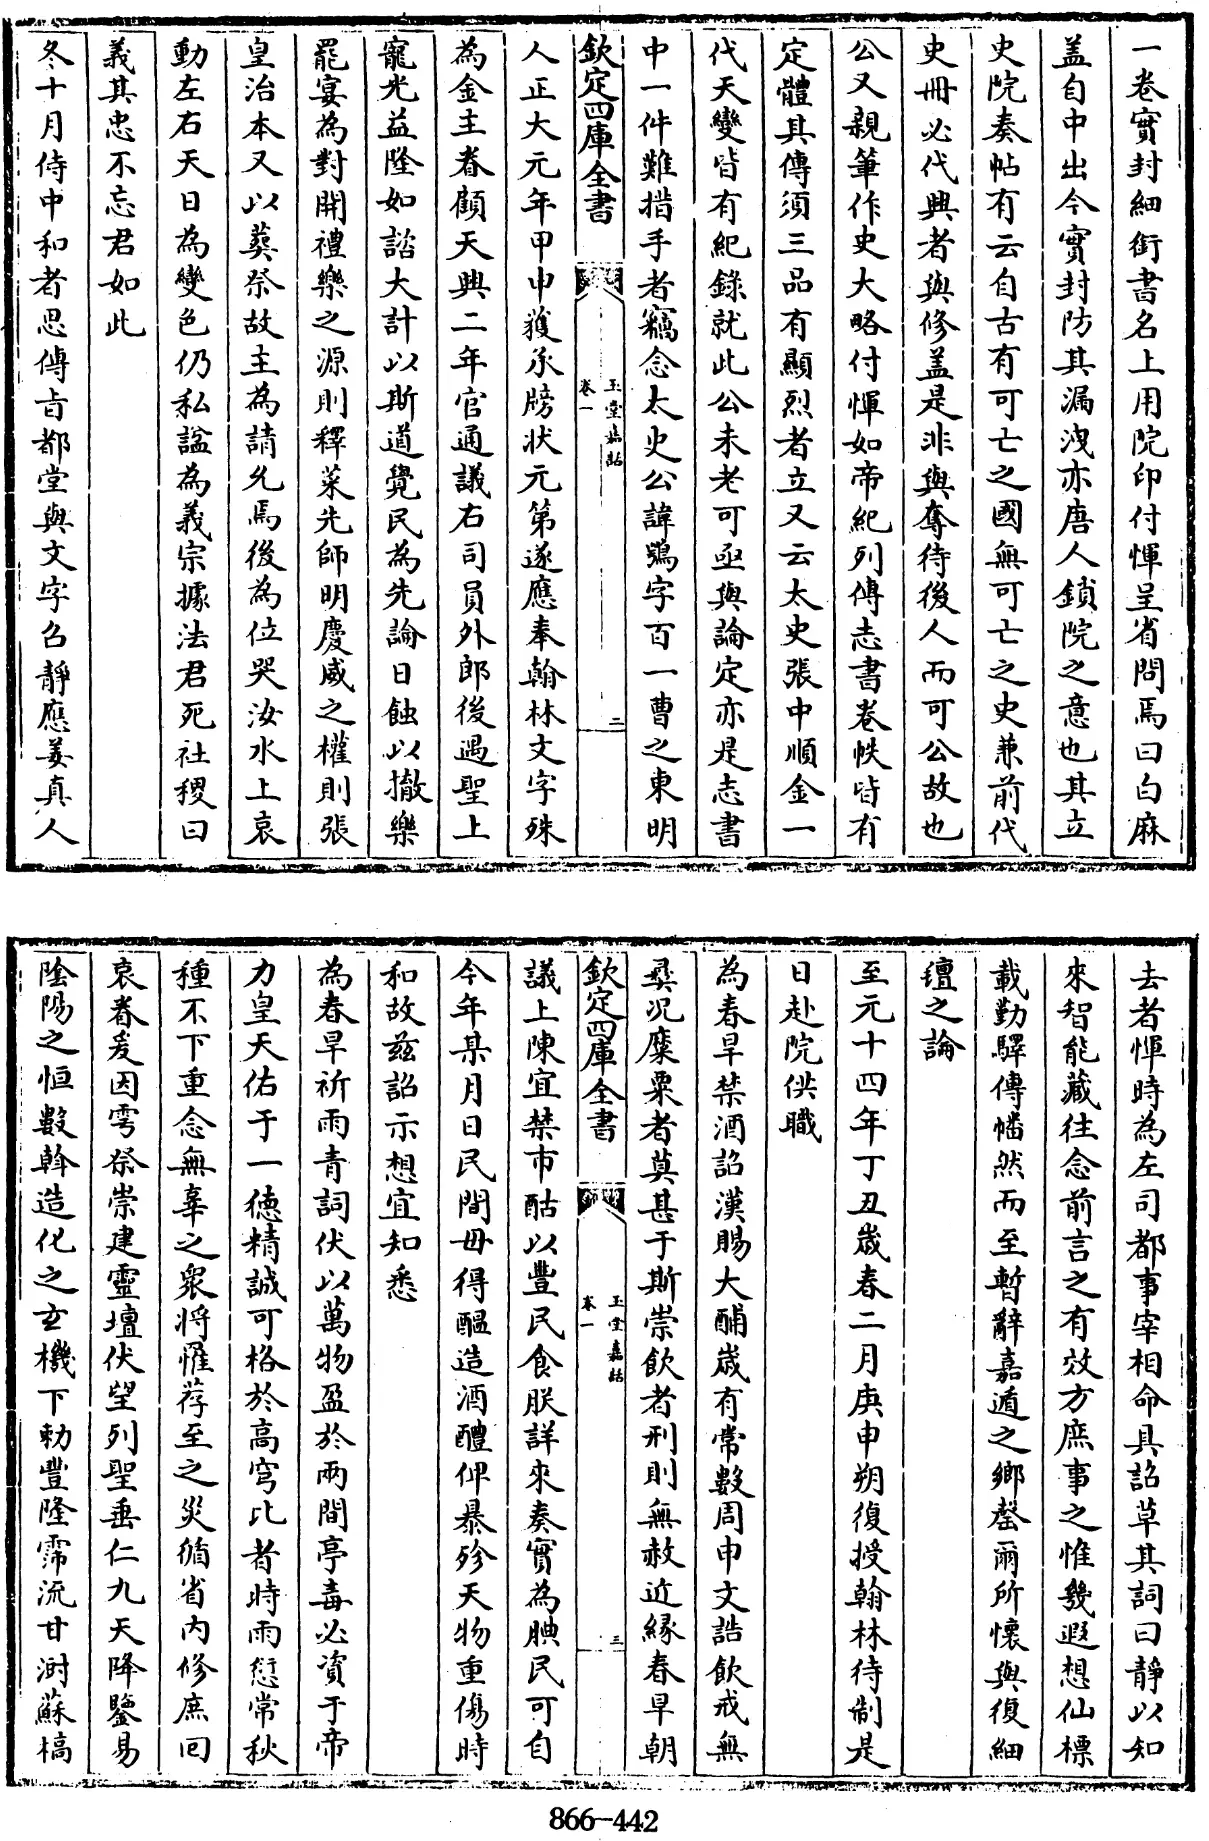 一卷實封細銜書名上用院印付惲呈省問焉曰白麻
盖自中出今實封防其漏洩亦唐人鎖院之意也其立
史院奏帖有云自古有可亡之國無可亡之史兼前代
史冊必代興者與修盖是非與奪待後人而可公故也
公又親筆作史大略付惲如帝紀列傳志書卷帙皆有
定體其傳須三品有顯烈者立又云太史張中順金一
代天變皆有紀錄就此公未老可亟與論定亦是志書
中一件難措手者竊念太史公諱鶚字百一曹之東明
欽定四庫全書
玉堂嘉話
卷一
二
人正大元年甲申獲承牓狀元第遂應奉翰林文字殊
為金主眷顧天興二年官通議右司員外郎後遇聖上
寵光益隆如諮大計以斯道覺民為先論日蝕以撤樂
罷宴為對開禮樂之源則釋菜先師明慶威之權則張
皇治本又以葬祭故主為請允焉後為位哭汝水上哀
動左右天日為變色仍私諡為義宗據法君死社稷曰
義其忠不忘君如此
冬十月侍中和者思傳旨都堂與文字召靜應姜真人
去者惲時為左司都事宰相命具詔草其詞曰靜以知
來智能藏往念前言之有效方庶事之惟幾遐想仙標
載勤驛傳幡然而至暫辭嘉遁之鄉罄爾所懷與復細
氊之論
至元十四年丁丑歲春二月庚申朔復授翰林待制是
日赴院供職
為春旱禁酒詔漢賜大酺歲有常數周申文誥飲戒無
彝況糜粟者莫甚于斯崇飲者刑則無赦近緣春旱朝
欽定四庫全書
玉堂嘉話
卷一
三
議上陳宜禁市酤以豐民食朕詳來奏實為腆民可自
今年某月日民間毋得醞造酒醴俾暴殄天物重傷時
和故兹詔示想宜知悉
為春旱祈雨青詞伏以萬物盈於兩間亭毒必資于帝
力皇天佑于一德精誠可格於高穹比者時雨愆常秋
種不下重念無辜之衆將懼荐至之災循省内修庶回
哀眷爰因雩祭崇建靈壇伏望列聖垂仁九天降鑒易
陰陽之恒數斡造化之玄機下勅豐隆霈流甘澍蘇槁
866-442